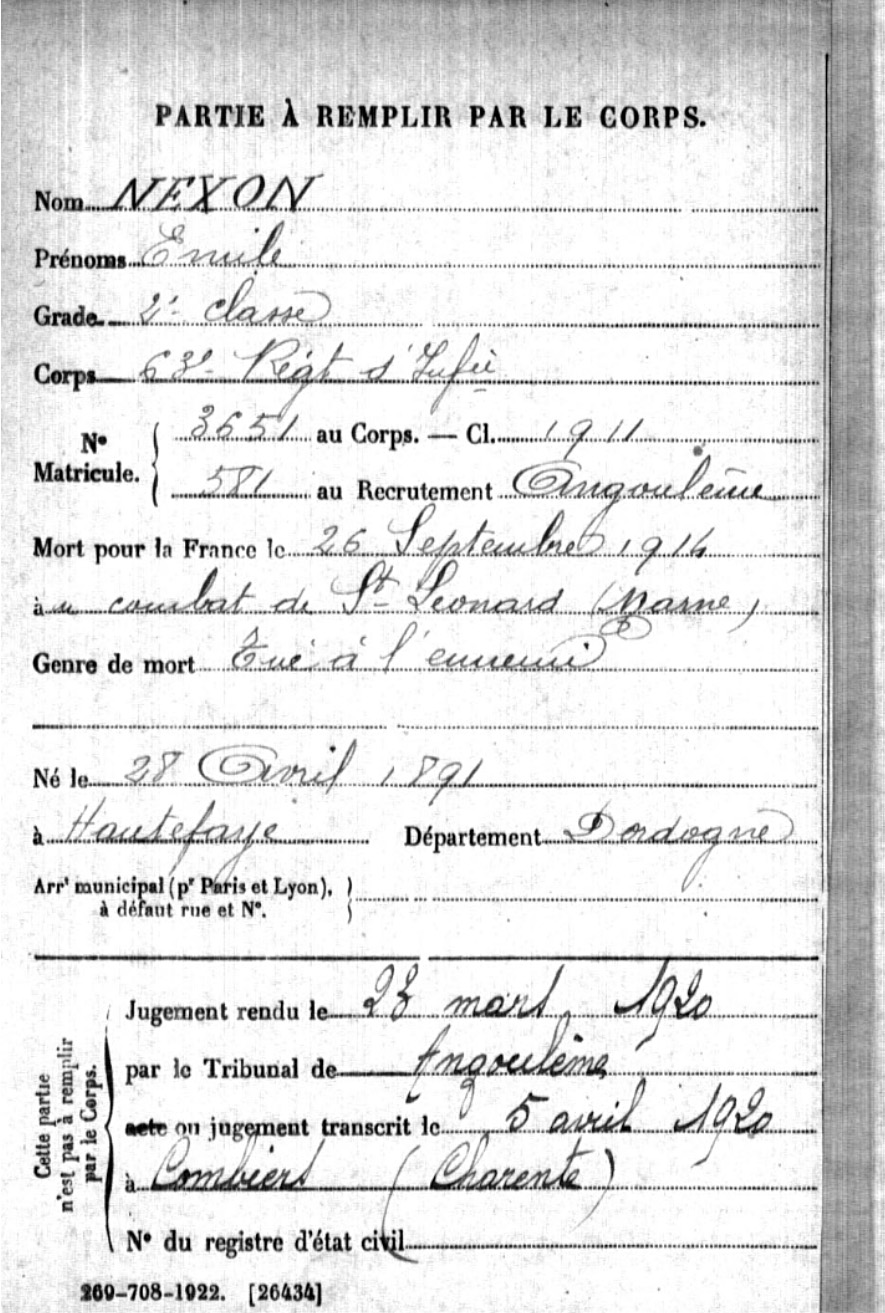 PARTIE À REMPLIR PAR LE CORPS.
Nom NEXON
Prénoms Emile
Grade 2e classe
Corps 63e Régt d'Infie
N° Matricule. 3651 au Corps. — Cl. 1911
581 au Recrutement Angoulême
Mort pour la France le 26 Septembre 1914
à u combat de St Léonard (Marne)
Genre de mort Tué à l'ennemi
Né le 28 Avril 1891
à Hautefaye Département Dordogne
Arrt municipal (pr Paris et Lyon),
à défaut rue et N°.
Cette partie
n'est pas à remplir
par le Corps.
Jugement rendu le 23 mars 1920
par le Tribunal de Angoulême
acte ou jugement transcrit le 5 avril 1920
à Combiers (Charente)
N° du registre d'état civil
269-708-1922. [26434]